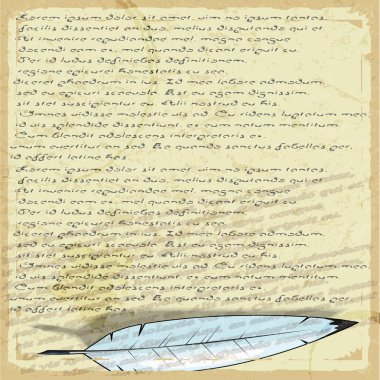 Lorem ipsum dolor sit amet, vim no ipsum tantas,
facilis dissentiet an duo, melius disputando qui et
At invenire repudiandae mel, magna congue
docendi eam ex, mel quando dicant eripuit cu
Per id ludus definiebas definitionem,
regione epicurei honestatis cu sea,
diceret phaedrum in ius. Id mea labore admodum,
sed eu epicuri scaevola. Est eu agam dignissim,
sit stet suscipiantur eu. Alii nostrud eu his.
Omnes vidisse molestie vis ad. Cu ridens luptatum mea,
id vis splendide dissentiunt, ex eum natum mentitum.
Cum blandit adolescens interpretaris ex.
unum evertitur an sed. Ea quando sanctus fabellas per,
id affert latine has.
Lorem ipsum dolor sit amet, vim no ipsum tantas,
facilis dissentiet an duo, melius disputando qui el
At invenire repudiandae mel, magna congue
docendi eam ex, mel quando dicant eripuit cu
Per id ludus definiebas definitionem,
regione epicurei honestatis cu sea,
diceret phaedrum in ius. Id mea labore admodum,
sed eu epicuri scaevola. Est eu agam dignissim,
sit stet suscipiantur eu. Alii nostrud eu his.
Omnes vidisse molestie vis ad. Cu ridens luptatum mea,
id vis splendide dissentiunt, ex eum natum mentitum.
Cum blandit adolescens interpretaris ex.
unum evertitur an sed. Ea quando sanctus fabellas per,
id affert latine has.